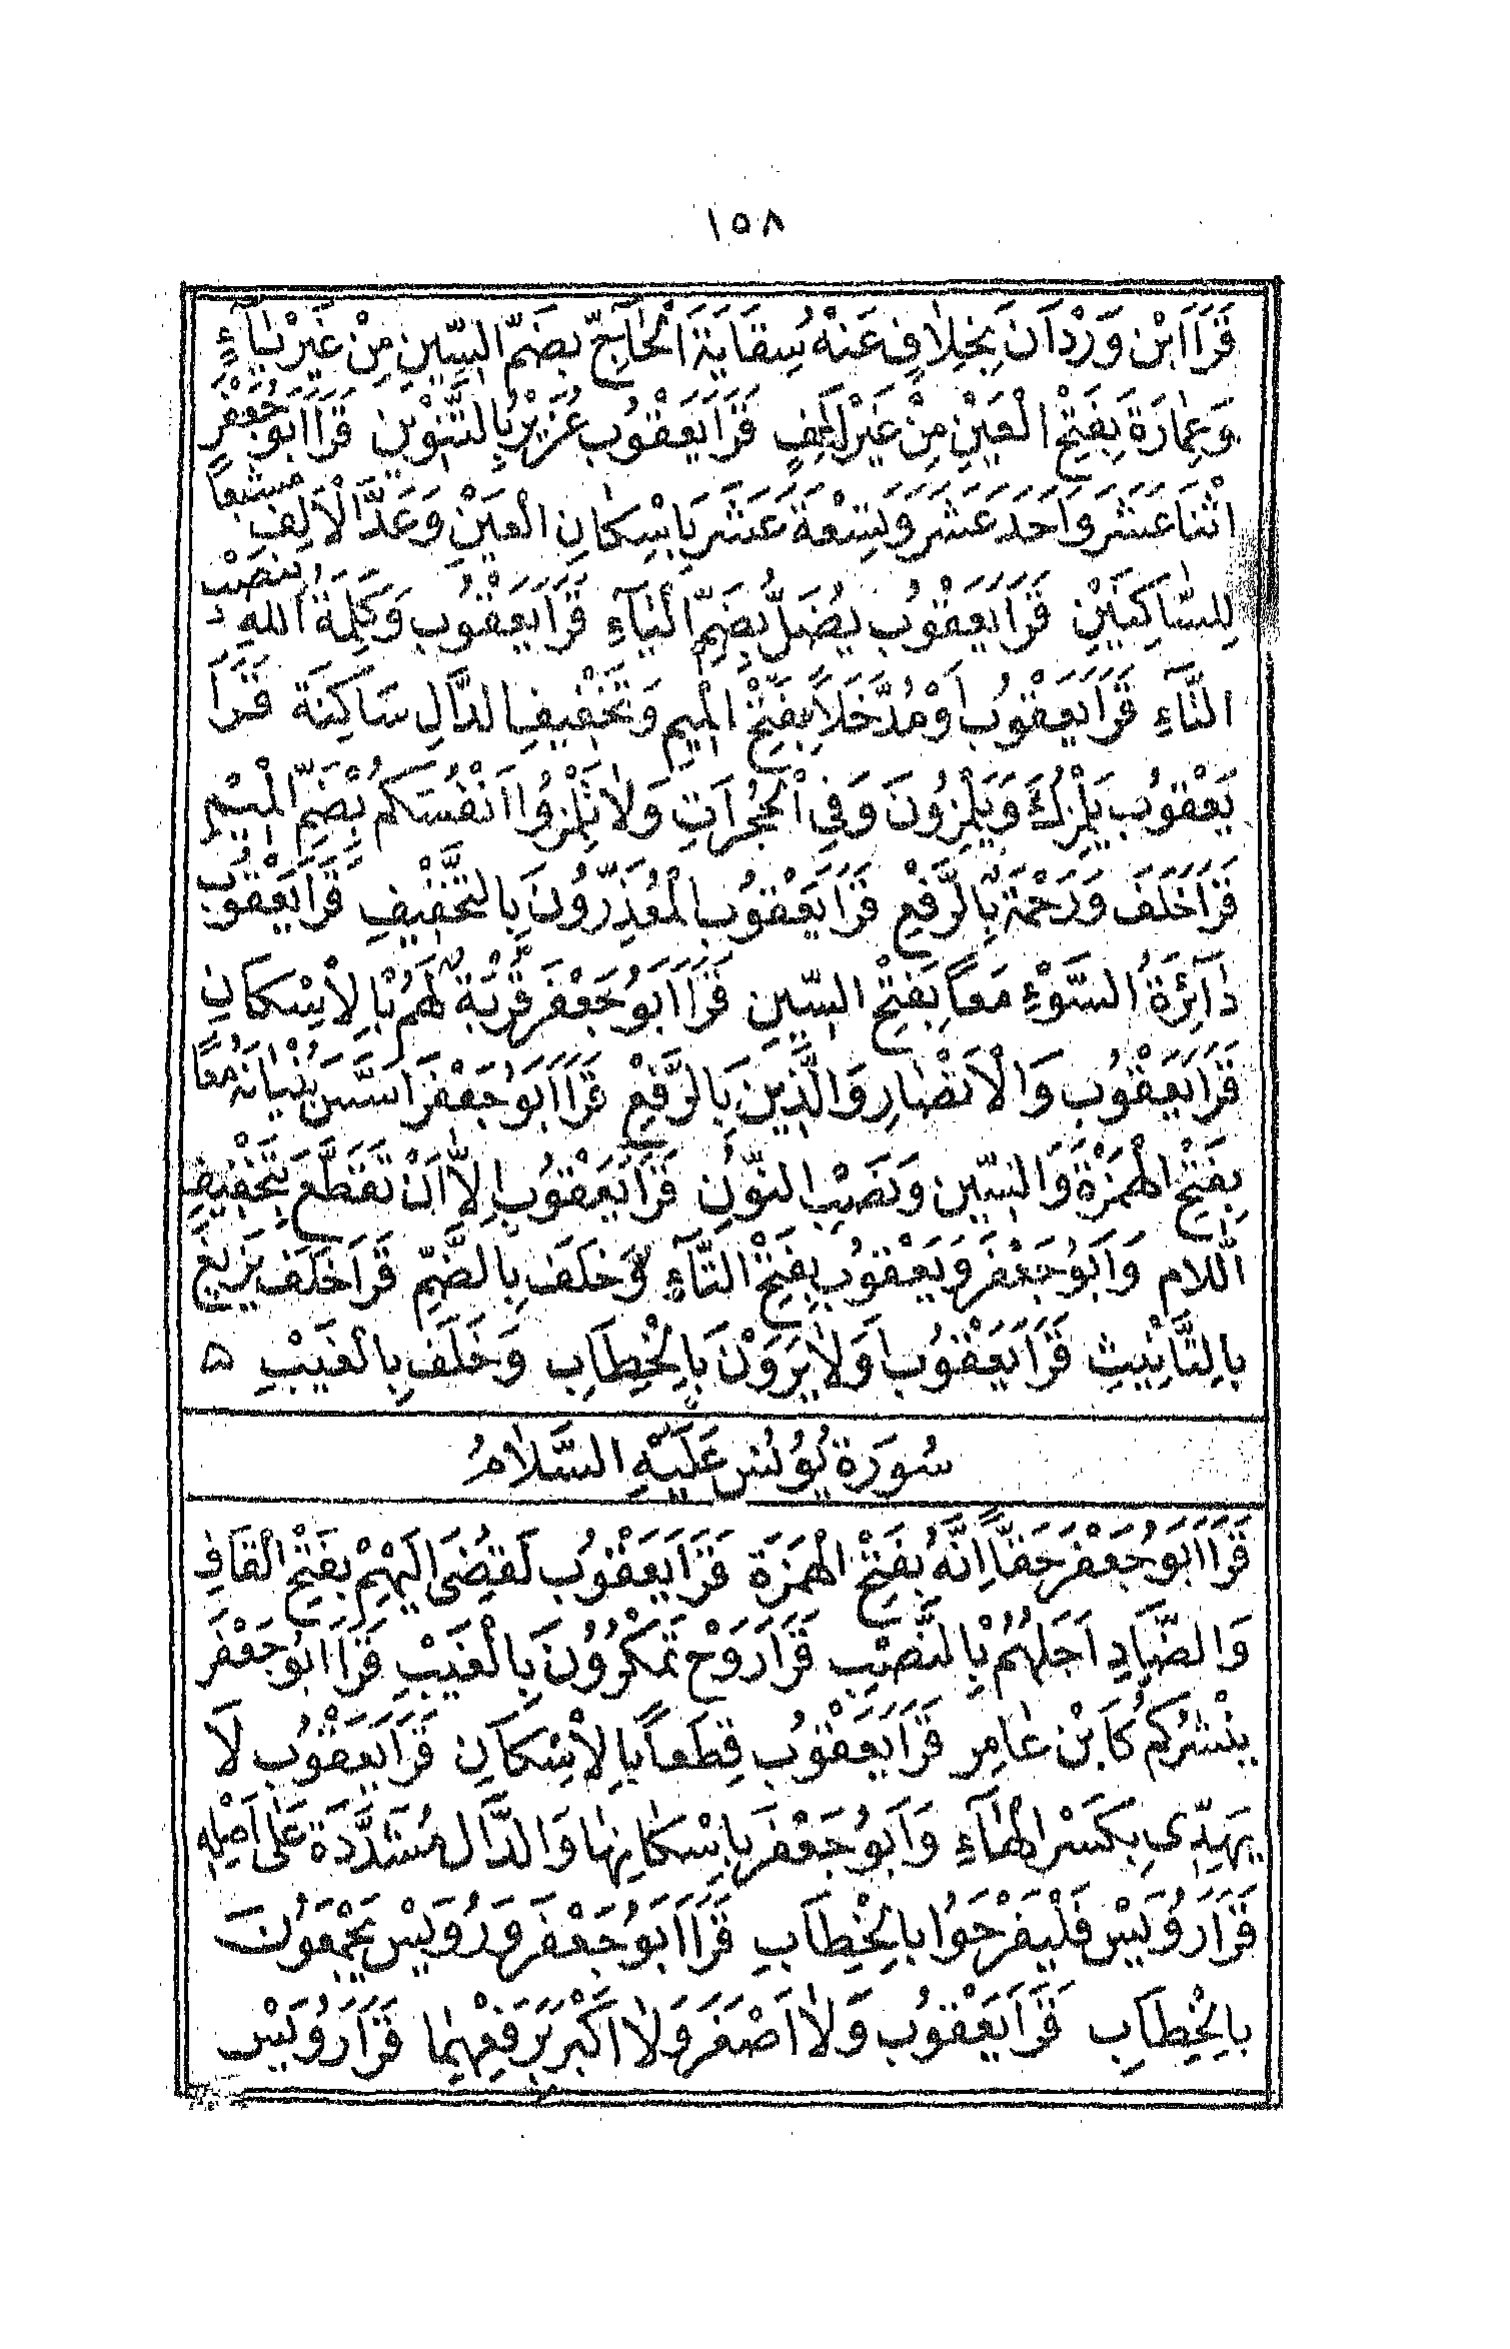 ١٥٨
قَرَأَ ابْن وَرْدَانَ بِخِلَافٍ عَنْهُ سِقَايَةَ الْحَاجِّ بِضَمِّ السِّينِ مِنْ غَيْرِ يَاءٍ
وَعِمَارَةَ بِفَتْحِ الْعَيْنِ مِنْ غَيْرِ اَلِفٍ قَرَأَ يَعْقُوُب عُزَيْرٌ بِالتَّنْوِينِ قَرَأَ اَبُو جَعْفَرٍ
اثْنَا عَشَر وَاَحَدَ عَشَر وَتِسْعَةَ عَشَر بِاِسْكَانِ الْعَيْنِ وَمَدَّ الْاَلِفِ مشبعاً
لِلسَّاكِنَيْنِ قَرَأَ يَعْقُوُب يُضَلُّ بِضَمِّ الْيَآءِ قَرَأَ يَعْقُوُب وَكَلِمَةُ اللهِ بنصب
التَّاءِ قَرَأَ يَعْقُوُب اَوْ مُدَّخَلاً بِفَتْحِ الْمِيمِ وَتَخْفِيفِ الدَّالِ سَاكِنَةَ قَرَأَ
يَعْقُوُب يَلْمِزُكَ وَيَلْمِزُونَ وَفِي الْحُجُرَاتِ وَلَا تَلْمِزُوا اَنْفُسَكُمْ بِضَمِّ الْمِيْمِ
قَرَأَ خَلَفَ وَرَحْمَةٌ بِالرَّفْعِ قَرَأَ يَعْقُوُب الْمُعَذِّرُونَ بِالتَّخْفِيفِ قَرَأَ يَعْقُوُب
دَائِرَةُ السَّوْءِ مَعاً بِفَتْحِ السِّينِ قَرَأَ اَبُو جَعْفَر قُرْبَةٌ لَهُمْ بِالْاِسْكَانِ
قَرَأَ يَعْقُوُب وَالْاَنْصَارِ وَالَّذِينَ بِالرَّفْعِ قَرَأَ اَبُو جَعْفَر اَسَّسَ بُنْيَانَهُ مَعًا
بِفَتْحِ الْهَمْزَةِ وَالسِّينِ وَنَصْبِ النُّونِ قَرَأَ يَعْقُوُب اِلَّا اَنْ تَقَطَّعَ بِتَخْفِيفِ
اللَّام وَاَبُو جَعْفَر وَيَعْقُوُب بِفَتْحِ التَّآءِ وَخَلَف بِالضَّمِّ قَرَأَ خَلَف يَزِيغُ
بِالتَّأنِيثِ قَرَأَ يَعْقُوُب اَوَلَا يَرَوْنَ بِالْخِطَابِ وَخَلَف بِالْغَيْبِ ۵
سُورَة يُونُس عَلَيْهِ السَّلَامُ
قَرَأَ اَبُو جَعْفَر حَقًّا اِنَّهُ بِفَتْحِ الْهَمْزَةِ قَرَأَ يَعْقُوُب لَقَضَى اِلَيْهِمْ بِفَتْحِ الْقَافِ
وَالضَّادِ اَجَلَهُمْ بِالنَّصْبِ قَرَأَ رَوْح تَمْكُرُونَ بِالْغَيْبِ قَرَأَ اَبُو جَعْفَر
يَنْشُرُكُمْ كَابْن عَامِر قَرَأَ يَعْقُوُب قِطَعاً بِالْاِسْكَانِ قَرَأَ يَعْقُوُب لَا
يَهِدِّى بِكَسْرِ الْهَآءِ وَاَبُو جَعْفَر بِاِسْكَانِهَا وَالدَّال مُشَدَّدَة عَلَى اَصْلِهِ
قَرَأَ رُوَيْس فَلْيَفْرَحُوا بِالْخِطَابِ قَرَأَ اَبُو جَعْفَر وَرُوَيْس يَجْمَعُونَ
بِالْخِطَابِ قَرَأَ يَعْقُوُب وَلَا اَصْغَرَ وَلَا اَكْبَر بِرَفْعِهِمَا قَرَأَ رُوَيْس